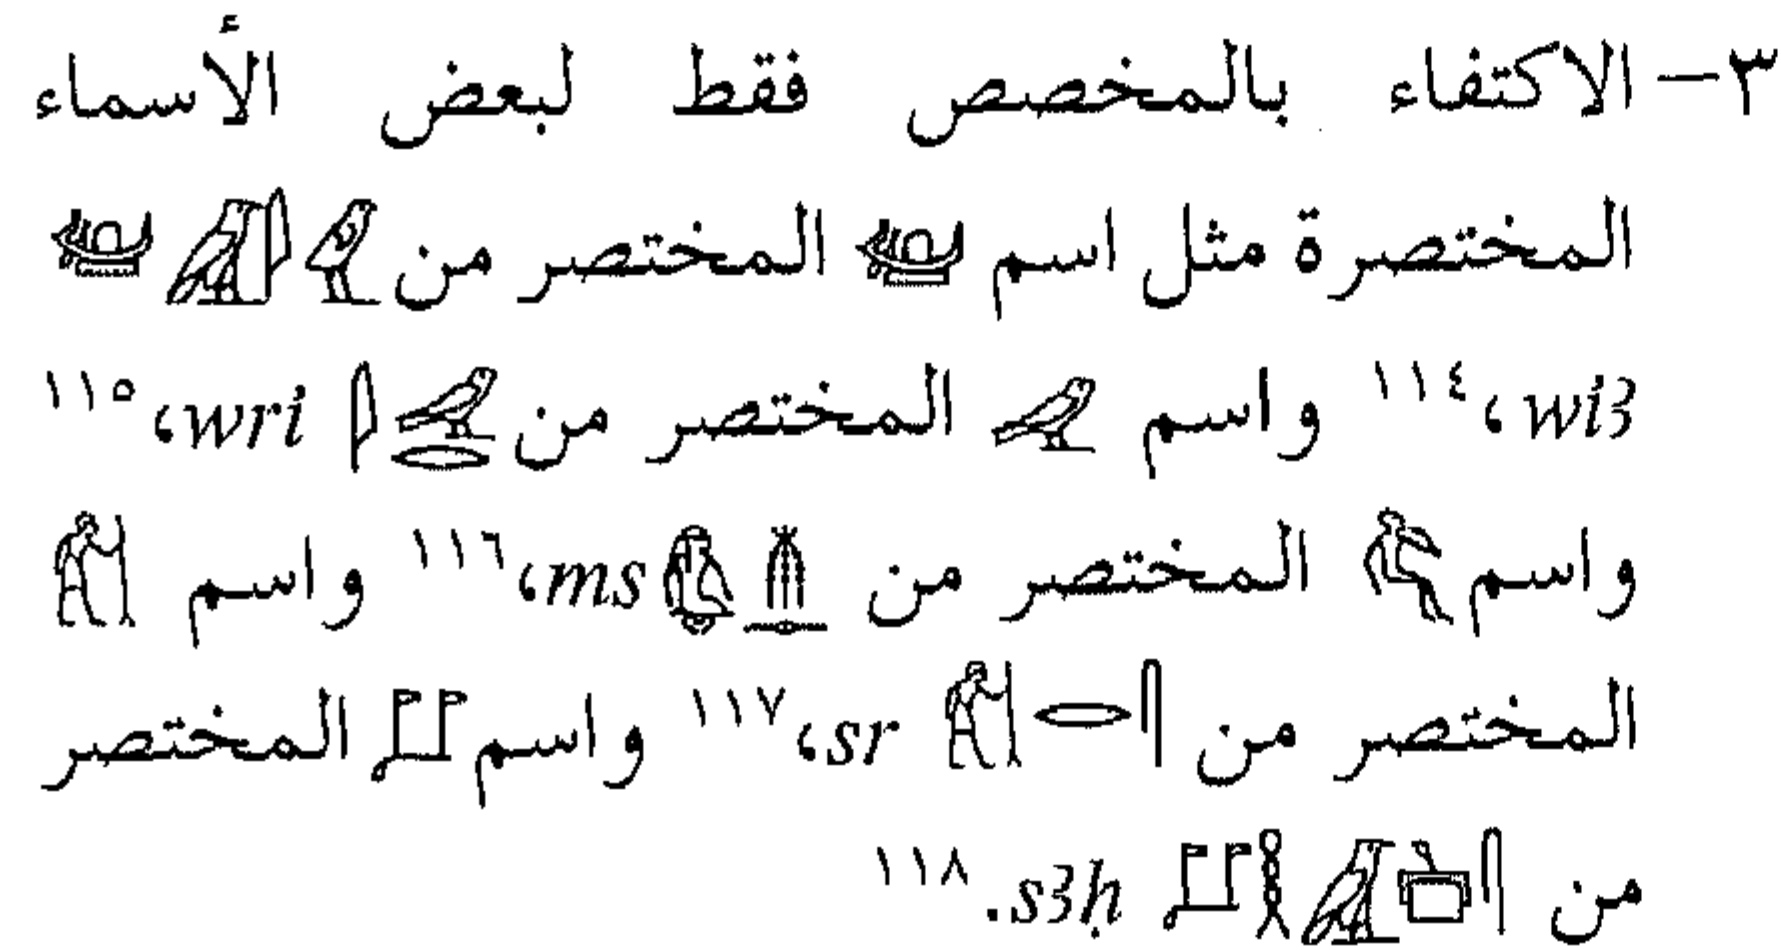 ٣- الاكتفاء بالمخصص فقط لبعض الأسماء
المختصرة مثل اسم 𓊞 المختصر من 𓅱𓇋𓄿𓊞
wi3،١١٤ واسم 𓅨 المختصر من 𓅨𓂋𓇋 wri،١١٥
واسم المختصر من ms،١١٦ واسم 𓀙
المختصر من 𓋴𓂋𓀙 sr،١١٧ واسم المختصر
من s3ḥ.١١٨